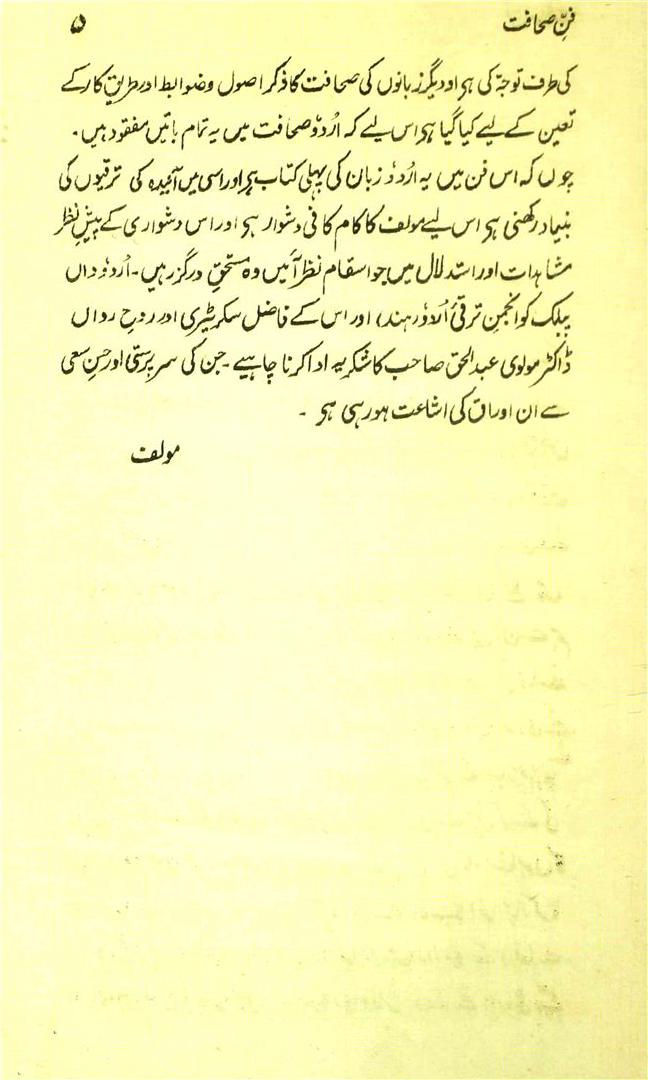 فنِّ صحافت ۵
کی طرف توجّہ کی ہی اور دیگر زبانوں کی صحافت کا ذکر اصول وضوابط اور طریقِ کار کے
تعین کے لیے کیا گیا ہی اس لیے کہ اُردوٗ صحافت میں یہ تمام باتیں مفقود ہیں۔
چوں کہ اس فن میں یہ اُردوٗ زبان کی پہلی کتاب ہی اور اسی میں آیندہ کی ترقیوں کی
بنیاد رکھنی ہی اس لیے مولف کا کام کافی دشوار ہی اور اس دشواری کے پیشِ نظر
مشاہدات اور استدلال میں جو اسقام نظر آئیں وہ مستحقِ درگزر ہیں۔ اُردوٗ داں
پبلک کو انجمنِ ترقیٔ اُردوٗ (ہند) اور اس کے فاضل سکریٹیری اور روحِ رواں
ڈاکٹر مولوی عبدالحق صاحب کا شکریہ ادا کرنا چاہیے۔ جن کی سرپرستی اور حسنِ سعی
سے ان اوراق کی اشاعت ہو رہی ہی ۔
مولف